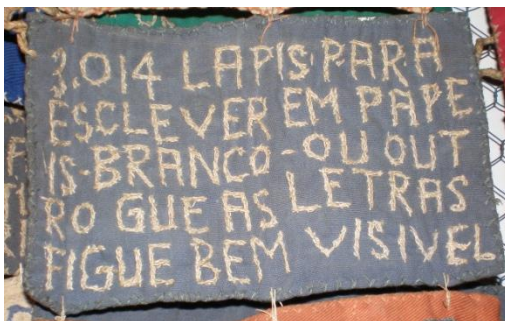 3.014 LAPIS·PARA
ESCLEVER EM PAPE
IS-BRANCO-OU OUT
RO GUE AS LETRAS
FIGUE BEM VISIVEL